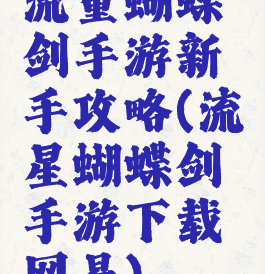 流星蝴蝶
剑手游新
手攻略(流
星蝴蝶剑
手游下载
网易)